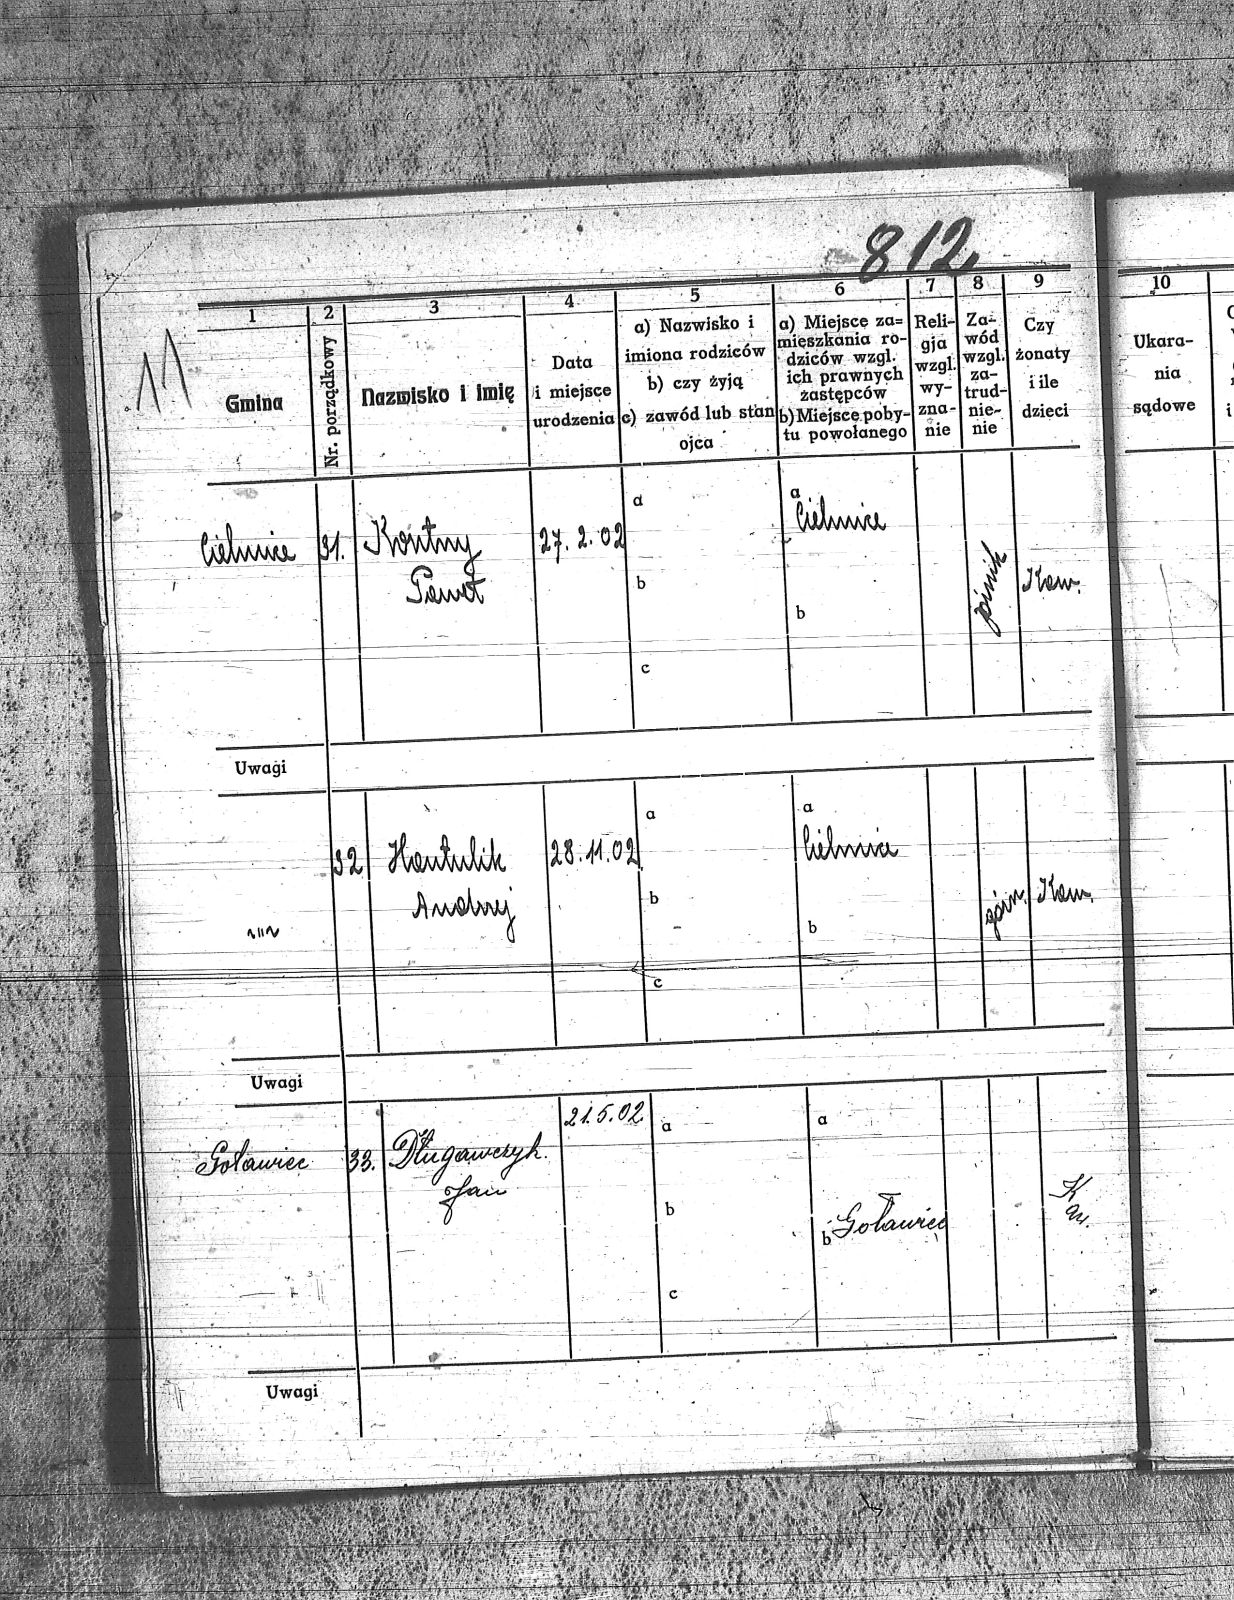 812
11
1
2
3
4
5
6
7
8
9
10
Gmina
Nr. porządkowy
Nazwisko i imię
Data
i miejsce
urodzenia
a) Nazwisko i
imiona rodziców
b) czy żyją
c) zawód lub stan
ojca
a) Miejsce za=
mieszkania ro-
dziców wzgl.
ich prawnych
zastępców
b) Miejsce poby-
tu powołanego
Reli-
gja
wzgl.
wy-
zna-
nie
Za-
wód
wzgl.
za-
trud-
nie-
nie
Czy
żonaty
i ile
dzieci
Ukara-
nia
sądowe
Cielmice
31.
Kontny
Paweł
27. 2. 02
a
b
c
a
Cielmice
b
górnik
Kaw.
Uwagi
~"~
32
Hantulik
Andrzej
28. 11. 02
a
b
c
a
Cielmice
b
górn.
Kaw.
Uwagi
Goławiec
33.
Długawczyk
Jan
21. 5. 02
a
b
c
a
b Goławiec
Uwagi